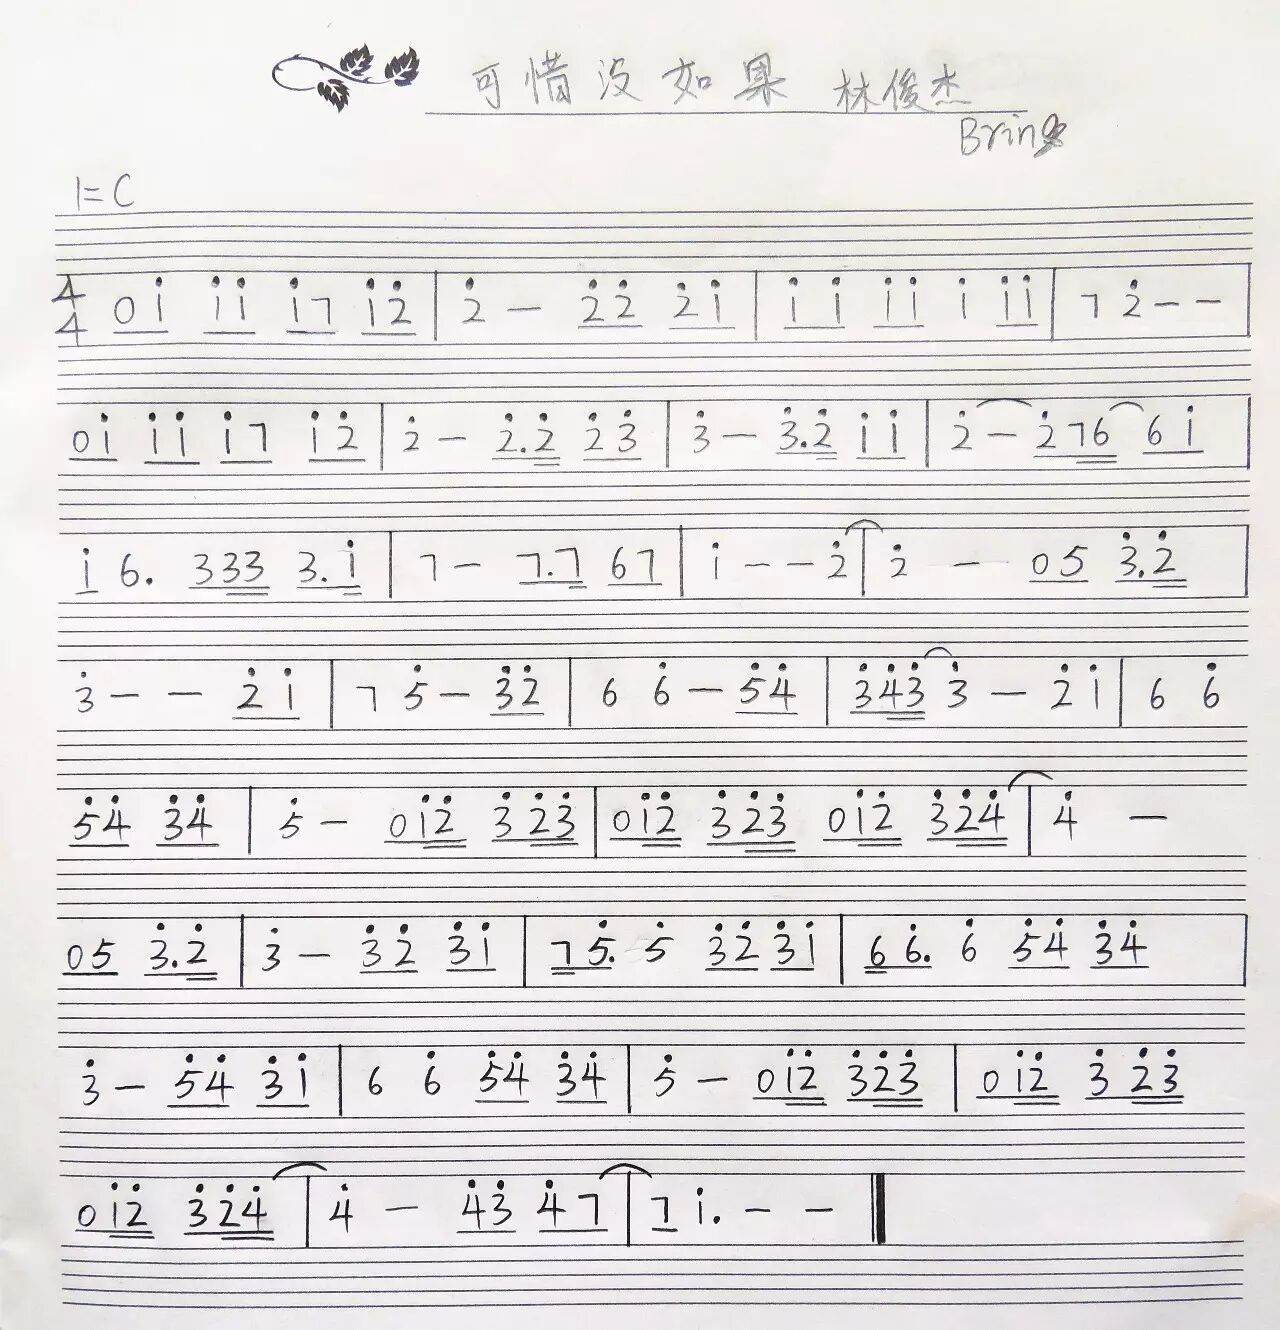 可惜没如果 林俊杰
Bring
1=C
4/4 0i̇ i̇i̇ i̇7 i̇2̇ | 2̇ - 2̇2̇ 2̇i̇ | i̇i̇ i̇i̇ i̇ i̇i̇ | 7 2̇ - - |
0i̇ i̇i̇ i̇7 i̇2̇ | 2̇ - 2̇.2̇ 2̇3̇ | 3̇ - 3̇.2̇ i̇i̇ | 2̇ - 2̇76 6i̇ |
i̇ 6. 333 3.i̇ | 7 - 7.7 67 | i̇ - - 2̇ | 2̇ - 05 3̇.2̇ |
3̇ - - 2̇i̇ | 7 5̇ - 3̇2̇ | 6 6̇ - 5̇4̇ | 3̇4̇3̇ 3̇ - 2̇ i̇ | 6 6̇
5̇4̇ 3̇4̇ | 5̇ - 0i̇2̇ 3̇2̇3̇ | 0i̇2̇ 3̇2̇3̇ 0i̇2̇ 3̇2̇4̇ | 4̇ -
05 3̇.2̇ | 3̇ - 3̇2̇ 3̇i̇ | 75̇. 5̇ 3̇2̇ 3̇i̇ | 66̇. 6̇ 5̇4̇ 3̇4̇ |
3̇ - 5̇4̇ 3̇i̇ | 6 6̇ 5̇4̇ 3̇4̇ | 5̇ - 0i̇2̇ 3̇2̇3̇ | 0i̇2̇ 3̇2̇3̇
0i̇2̇ 3̇2̇4̇ | 4̇ - 4̇3̇ 4̇7 | 7 i̇. - - ‖